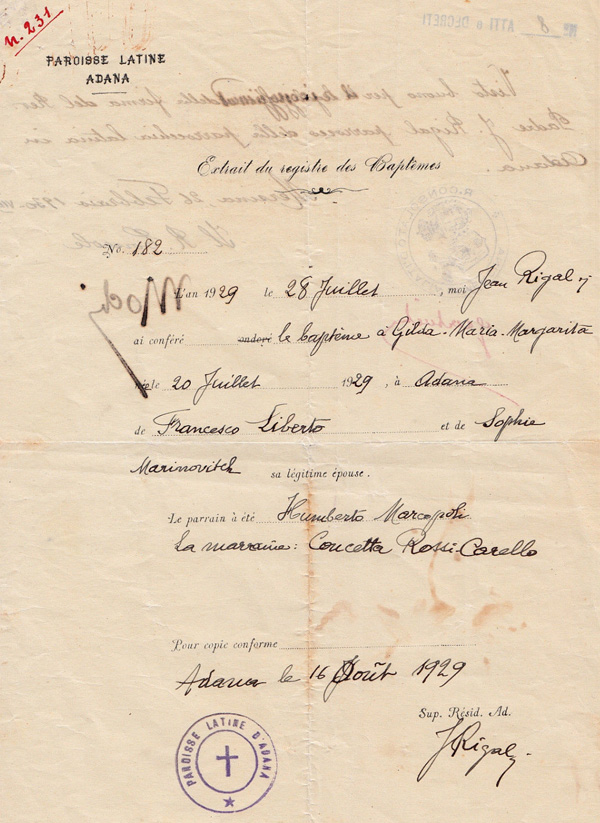 n. 231
Nº 8 ATTI e DECRETI
PAROISSE LATINE
ADANA
Visto buono per la della firma del Rev.
Padre J. Rigal parroco della parrocchia latina in
Adana.
Extrait du registre des Baptêmes
26 Febbraio 1930
No. 182
L'an 1929 le 28 Juillet, moi Jean Rigal sj
ai conféré ondoyé le baptême à Gilda-Maria-Margarita
née le 20 Juillet 1929, à Adana
de Francesco Liberto et de Sophie
Marinovitch sa légitime épouse.
Le parrain à été Humberto Marcopoli
La marraine: Concetta Rossi-Carello
Pour copie conforme
Adana le 16 Août 1929
Sup. Résid. Ad.
J Rigal sj
PAROISSE LATINE D'ADANA